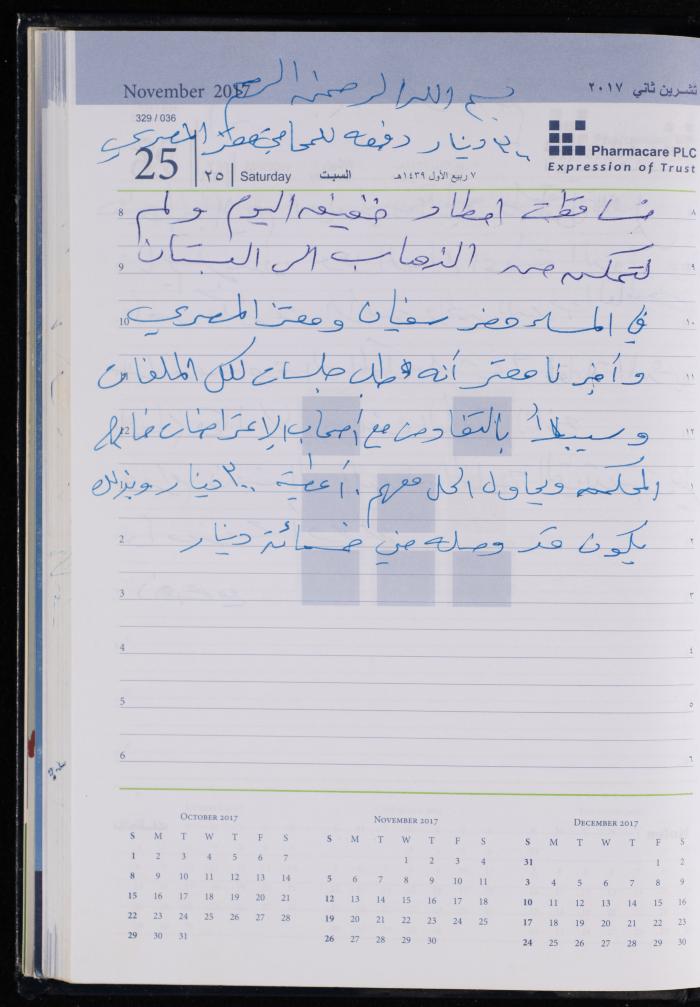 November 2017
تشرين ثاني ٢٠١٧
بسم الله الرحمن الرحيم
329 / 036
٣٠٠ دينار دفعه للمحامي معتز المصري
Pharmacare PLC
Expression of Trust
25 | ٢٥ | Saturday السبت ٧ ربيع الأول ١٤٣٩هـ
8 تساقطت امطار خفيفه اليوم ولم ٨
9 نتمكن من الذهاب الى البستان ٩
10 في المساء حضر سفيان ومعتز المصري ١٠
11 وأخبرنا معتز أنه طلب جلسات لكل الملفات ١١
12 وسيبدأ بالتفاوض مع أصحاب الإعتراضات خارج ١٢
1 المحكمه ويحاول الحل معهم . أعطيته ٣٠٠ دينار وبذلك ١
2 يكون قد وصله مني خمسمائة دينار ٢
3 ٣
4 ٤
5 ٥
6 ٦
October 2017
S M T W T F S
1 2 3 4 5 6 7
8 9 10 11 12 13 14
15 16 17 18 19 20 21
22 23 24 25 26 27 28
29 30 31
November 2017
S M T W T F S
1 2 3 4
5 6 7 8 9 10 11
12 13 14 15 16 17 18
19 20 21 22 23 24 25
26 27 28 29 30
December 2017
S M T W T F S
31 1 2
3 4 5 6 7 8 9
10 11 12 13 14 15 16
17 18 19 20 21 22 23
24 25 26 27 28 29 30